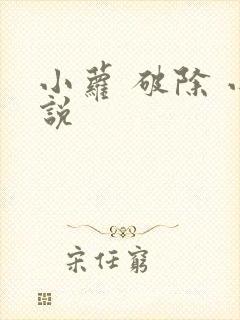 小蘿 破除
說
宋任窮